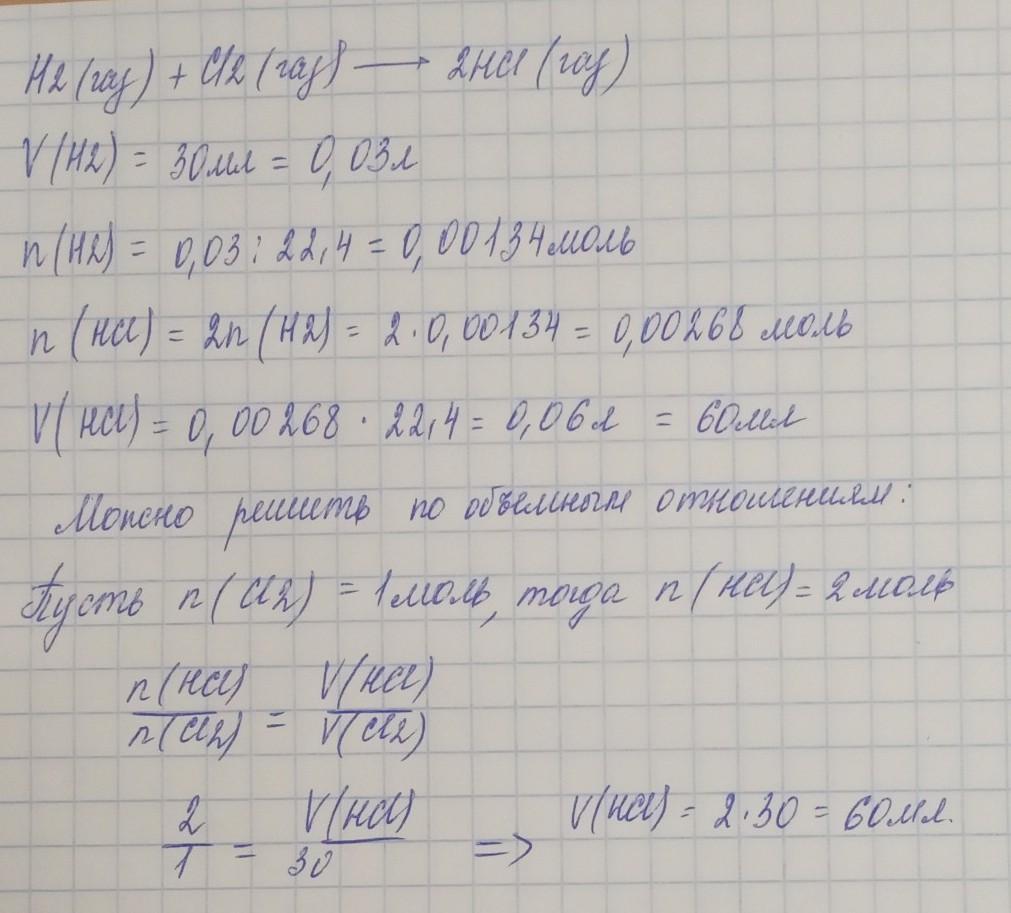 H2 (газ) + Cl2 (газ) ⟶ 2HCl (газ)
V(H2) = 30мл = 0,03л
n(H2) = 0,03 : 22,4 = 0,00134моль
n (HCl) = 2n (H2) = 2·0,00134 = 0,00268 моль
V(HCl) = 0,00268 · 22,4 = 0,06л = 60мл
Можно решить по объемным отношениям:
Пусть n (Cl2) = 1моль, тогда n (HCl) = 2моль
n(HCl) / n(Cl2) = V(HCl) / V(Cl2)
2 / 1 = V(HCl) / 30 => V(HCl) = 2·30 = 60мл.